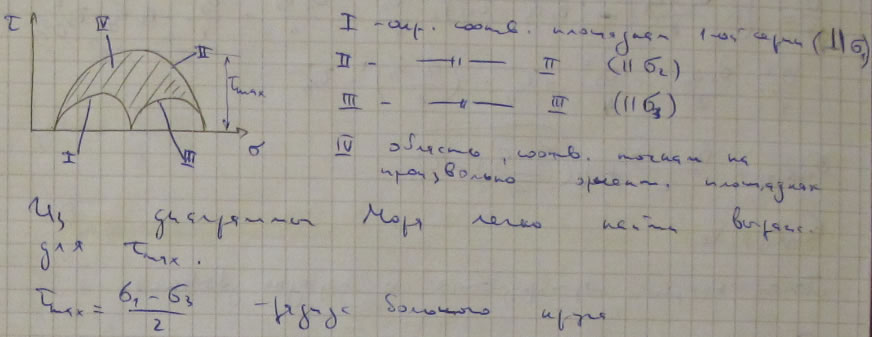 τ
IV
II
τmax
I
III
σ
I - окр. соотв. площадкам 1-ой серии (||σ₁)
II - —||— II (||σ₂)
III - —||— III (||σ₃)
IV область, соотв. точкам на
произвольно ориент. площадках
Из диаграммы Мора легко найти выраж.
для τmax.
τmax = (σ₁ - σ₃)/2 - радиус большого круга